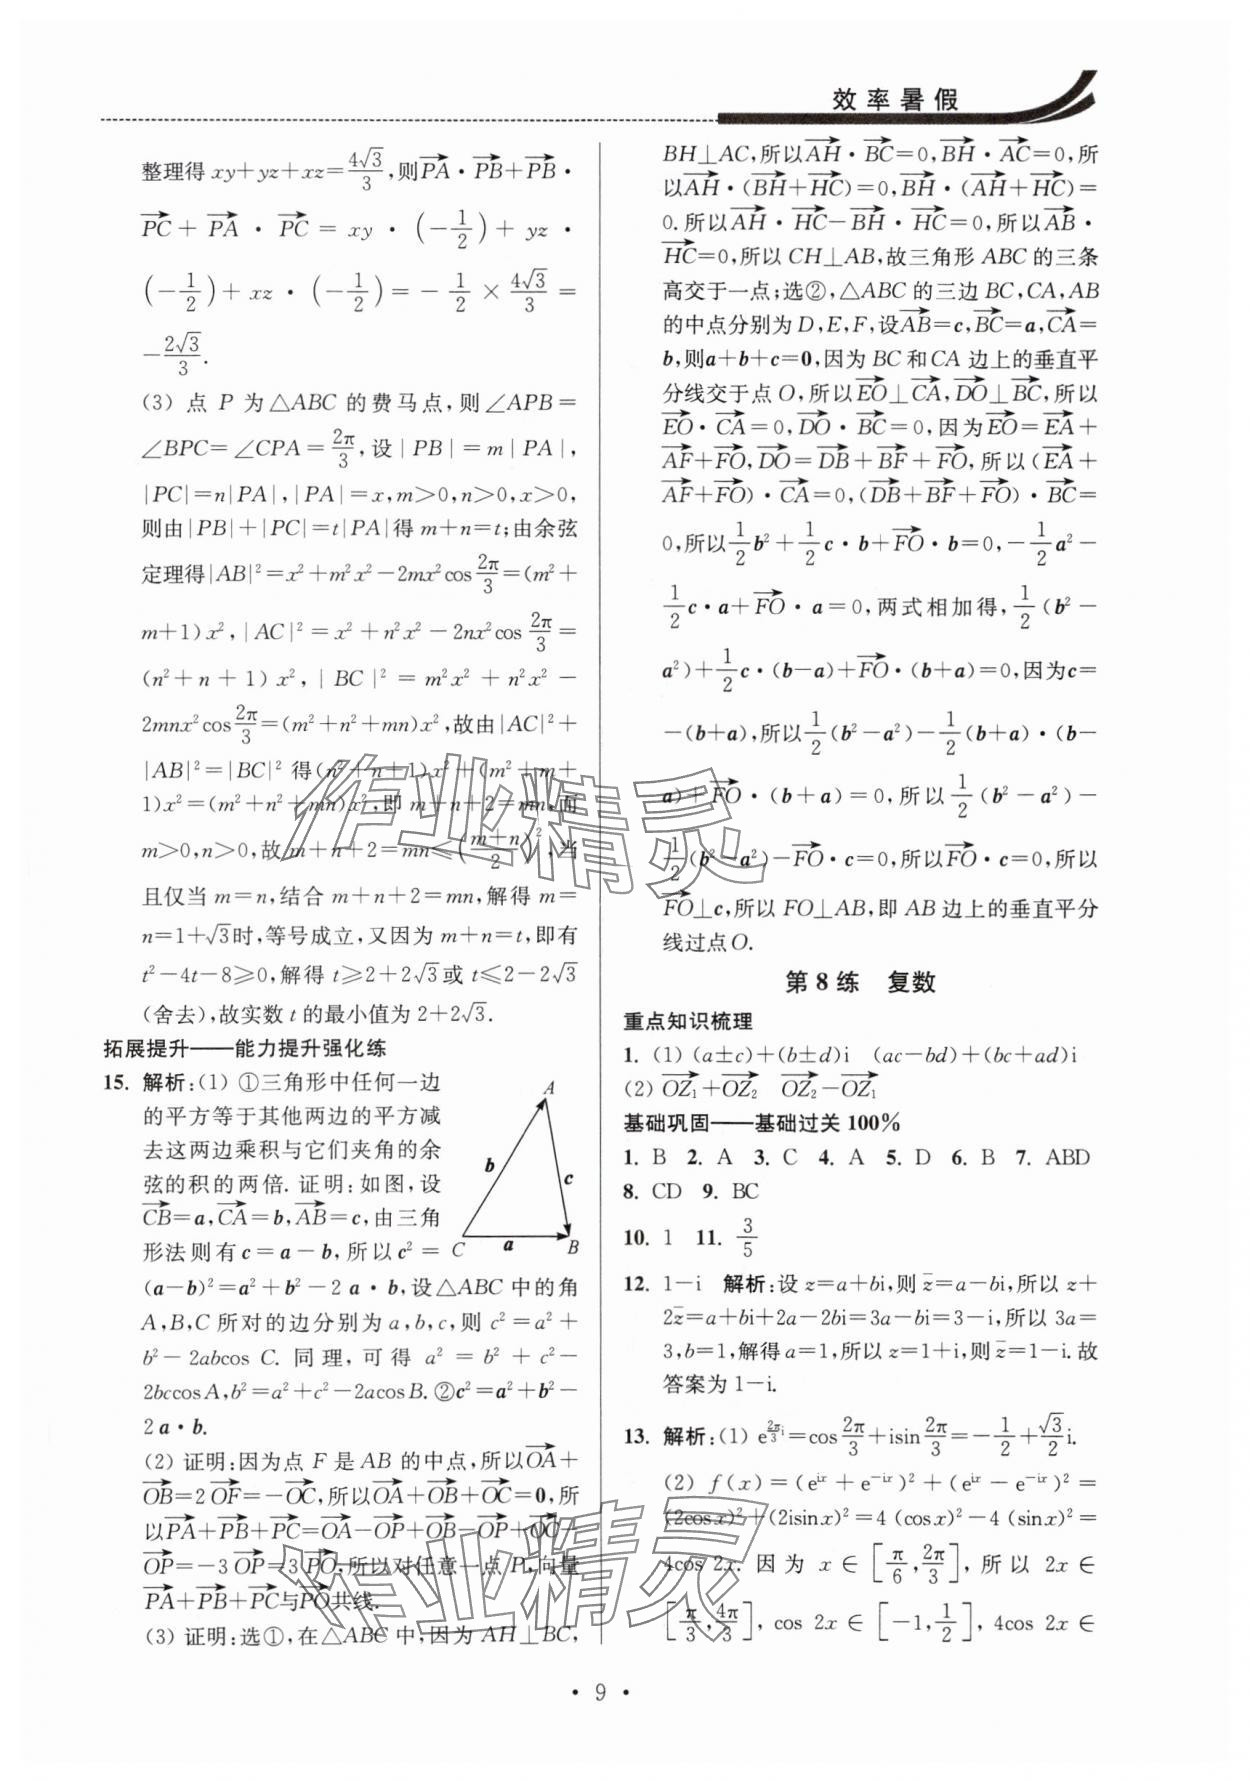 效率暑假
整理得 xy+yz+xz=4√3/3,则PA·PB+PB·
PC+PA·PC=xy·(-1/2)+yz·
(-1/2)+xz·(-1/2)=-1/2×4√3/3=
-2√3/3.
(3) 点 P 为△ABC 的费马点,则∠APB=
∠BPC=∠CPA=2π/3,设|PB|=m|PA|,
|PC|=n|PA|,|PA|=x,m>0,n>0,x>0,
则由|PB|+|PC|=t|PA|得 m+n=t;由余弦
定理得|AB|²=x²+m²x²-2mx²cos2π/3=(m²+
m+1)x²,|AC|²=x²+n²x²-2nx²cos2π/3=
(n²+n+1)x²,|BC|²=m²x²+n²x²-
2mnx²cos2π/3=(m²+n²+mn)x²,故由|AC|²+
|AB|²=|BC|²得(n²+n+1)x²+(m²+m+
1)x²=(m²+n²+mn)x²,即 m+n+2=mn,而
m>0,n>0,故 m+n+2=mn≤((m+n)/2)²,当
且仅当 m=n,结合 m+n+2=mn,解得 m=
n=1+√3时,等号成立,又因为 m+n=t,即有
t²-4t-8≥0,解得 t≥2+2√3或 t≤2-2√3
(舍去),故实数 t 的最小值为 2+2√3.
拓展提升——能力提升强化练
15. 解析:(1) ①三角形中任何一边
的平方等于其他两边的平方减
去这两边乘积与它们夹角的余
弦的积的两倍. 证明:如图,设
CB=a,CA=b,AB=c,由三角
形法则有 c=a-b,所以 c²=
A
b
c
C
a
B
(a-b)²=a²+b²-2a·b,设△ABC 中的角
A,B,C 所对的边分别为 a,b,c,则 c²=a²+
b²-2abcos C. 同理,可得 a²=b²+c²-
2bccosA,b²=a²+c²-2acosB. ②c²=a²+b²-
2a·b.
(2) 证明:因为点 F 是 AB 的中点,所以OA+
OB=2OF=-OC,所以OA+OB+OC=0,所
以PA+PB+PC=OA-OP+OB-OP+OC-
OP=-3OP=3PO,所以对任意一点 P,向量
PA+PB+PC与PO共线.
(3) 证明:选①,在△ABC 中,因为 AH⊥BC,
BH⊥AC,所以AH·BC=0,BH·AC=0,所
以AH·(BH+HC)=0,BH·(AH+HC)=
0. 所以AH·HC-BH·HC=0,所以AB·
HC=0,所以 CH⊥AB,故三角形 ABC 的三条
高交于一点;选②,△ABC 的三边 BC,CA,AB
的中点分别为 D,E,F,设AB=c,BC=a,CA=
b,则a+b+c=0,因为 BC 和CA 边上的垂直平
分线交于点 O,所以EO⊥CA,DO⊥BC,所以
EO·CA=0,DO·BC=0,因为EO=EA+
AF+FO,DO=DB+BF+FO,所以(EA+
AF+FO)·CA=0,(DB+BF+FO)·BC=
0,所以1/2b²+1/2c·b+FO·b=0,-1/2a²-
1/2c·a+FO·a=0,两式相加得,1/2(b²-
a²)+1/2c·(b-a)+FO·(b+a)=0,因为c=
-(b+a),所以1/2(b²-a²)-1/2(b+a)·(b-
a)+FO·(b+a)=0,所以1/2(b²-a²)-
1/2(b²-a²)-FO·c=0,所以FO·c=0,所以
FO⊥c,所以 FO⊥AB,即 AB 边上的垂直平分
线过点 O.
第 8 练 复数
重点知识梳理
1. (1) (a±c)+(b±d)i (ac-bd)+(bc+ad)i
(2) OZ₁+OZ₂ OZ₂-OZ₁
基础巩固——基础过关 100%
1. B 2. A 3. C 4. A 5. D 6. B 7. ABD
8. CD 9. BC
10. 1 11. 3/5
12. 1-i 解析:设 z=a+bi,则z̄=a-bi,所以 z+
2z̄=a+bi+2a-2bi=3a-bi=3-i,所以 3a=
3,b=1,解得 a=1,所以 z=1+i,则z̄=1-i. 故
答案为 1-i.
13. 解析:(1) e^(2π/3 i)=cos2π/3+isin2π/3=-1/2+√3/2i.
(2) f(x)=(e^ix+e^-ix)²+(e^ix-e^-ix)²=
(2cosx)²+(2isinx)²=4(cosx)²-4(sinx)²=
4cos 2x. 因为 x∈[π/6,2π/3],所以 2x∈
[π/3,4π/3],cos 2x∈[-1,1/2],4cos 2x∈
·9·
作业精灵
作业精灵